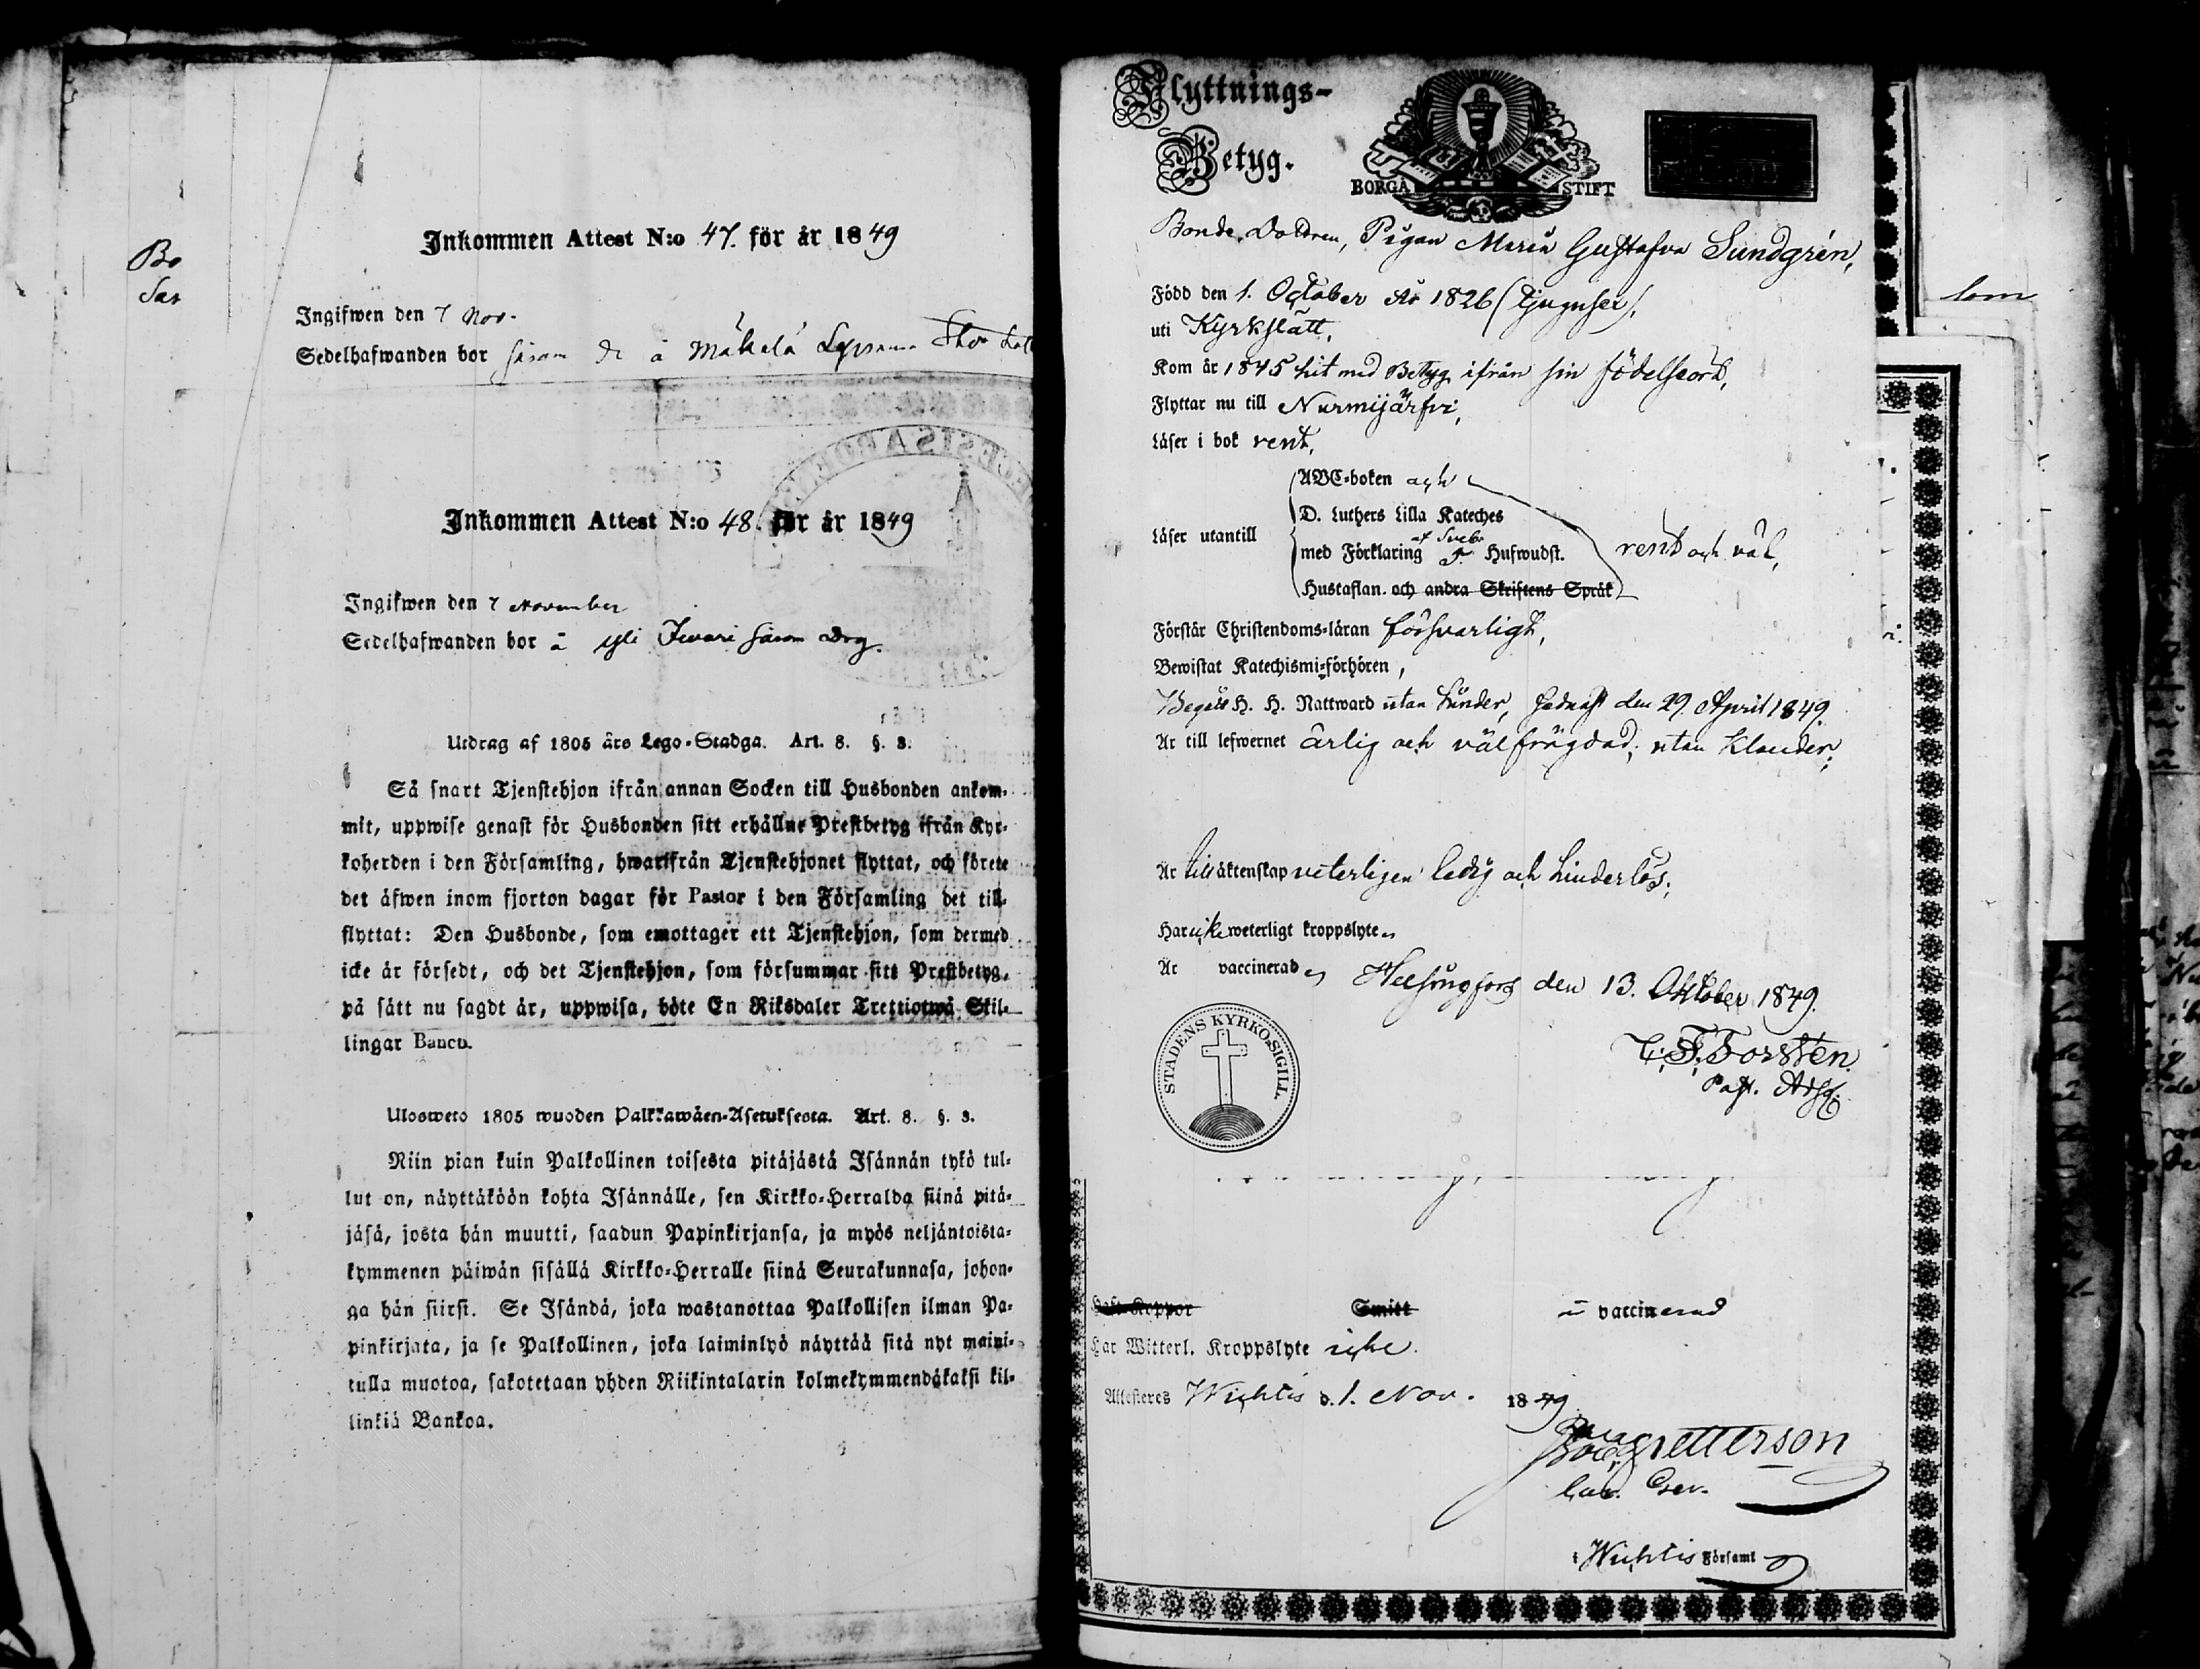 Bo
Inkommen Attest N:o 47. för år 1849
Ingifwen den 7 Nov.
Sedelhafwanden bor å Mäkelä
Inkommen Attest N:o 48. för år 1849
Ingifwen den 7 November
Sedelhafwanden bor å Yli
Utdrag af 1805 års Lego-Stadga. Art. 8. §. 3.
Så snart Tjenstehjon ifrån annan Socken till Husbonden ankom-
mit, uppwise genast för Husbonden sitt erhållne Prestbetyg ifrån Kyr-
koherden i den Församling, hwarifrån Tjenstehjonet flyttat, och förete
det äfwen inom fjorton dagar för Pastor i den Församling det till-
flyttat: Den Husbonde, som emottager ett Tjenstehjon, som dermed
icke är försedt, och det Tjenstehjon, som försummar sitt Prestbetyg,
på sätt nu sagdt är, uppwisa, böte En Riksdaler Trettiotwå Skil-
lingar Banco.
Ulosweto 1805 wuoden Palkkawäen-Asetuksesta. Art. 8. §. 3.
Niin pian kuin Palkollinen toisesta pitäjästä Isännän tykö tul-
lut on, näyttäköön kohta Isännälle, sen Kirkko-Herralda siinä pitä-
jäsä, josta hän muutti, saadun Papinkirjansa, ja myös neljäntoista-
kymmenen päiwän sisällä Kirkko-Herralle siinä Seurakunnasa, johon-
ga hän siirsi. Se Isändä, joka wastanottaa Palkollisen ilman Pa-
pinkirjata, ja se Palkollinen, joka laiminlyö näyttää sitä nyt maini-
tulla muotoa, sakotetaan yhden Riikintalarin kolmekymmendäkaksi kil-
linkiä Bankoa.
Flyttnings-
Betyg.
BORGÅ STIFT
Bonde Dottren, Pigan Maria Gustafva Sundgrén,
Född den 1. October År 1826 (tjugusex),
uti Kyrkslätt,
Kom år 1845 hit med Betyg ifrån sin födelseort,
Flyttar nu till Nurmijärfvi,
Läser i bok rent,
ABC-boken och
D. Luthers Lilla Kateches
Läser utantill
med Förklaring af Sveb. Hufwudst.
rent och väl,
Hustaflan. och andra Skriftens Språk
Förstår Christendoms-läran försvarligt,
Bewistat Katechismi-förhören,
Begått H. H. Nattward utan hinder, sednast den 29. April 1849.
Är till lefwernet ärlig och välfrägdad, utan klander;
Är till äktenskap veterligen ledig och hinderlös;
Har icke weterligt kroppslyte
Är vaccinerad, Helsingfors den 13. Oktober 1849.
STADENS KYRKO-SIGILL.
Forsten.
Past. Adj.
Haft Koppor Smitt är vaccinerad
Har Witterl. Kroppslyte icke.
Attesteras Wichtis d. 1. Nov. 1849
i Wichtis Församl
som